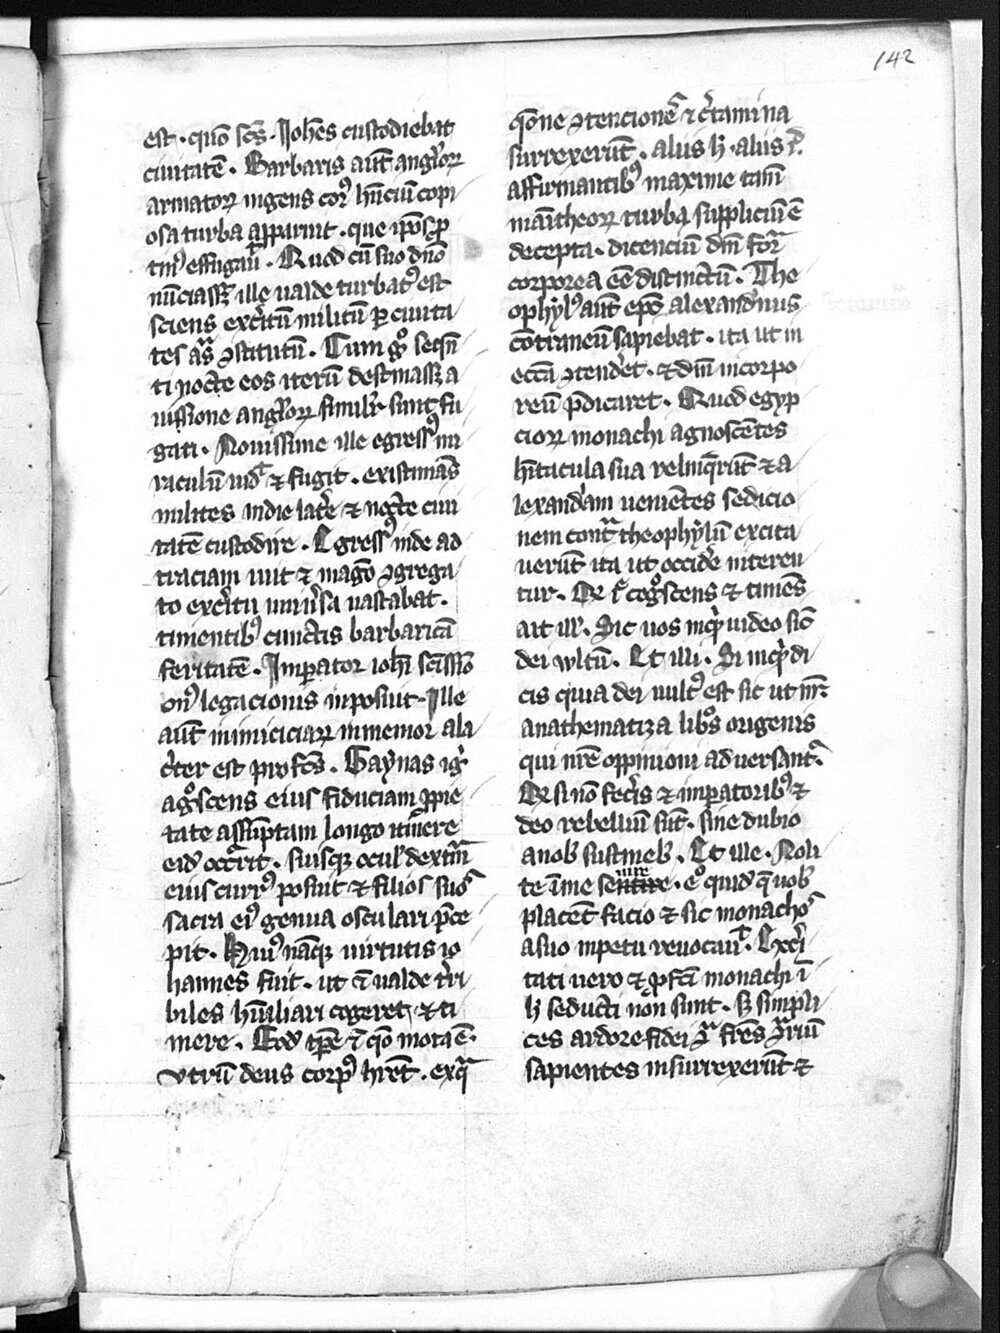 142
est . quō sc̄s . Ioh̄es custodiebat
ciuitatē . Barbaris aūt anglo'ꝝ
armatoꝝ ingens cor' hn̄ciū copi
osa turba apparuit . que ip̄os
tin' effugauit . Quod cū suo dn̄o
nūciass; ille ualde turbat' est
sciens exc'itū militū ꝑ ciuita
tes ꝯstitutū . Cum g° seq̄n
ti nocte eos iterū destinass; a
uisione anglo'ꝝ simil'r sunt fu
gati . Nouissime ille egress' mi
raculū uid; ⁊ fugit . existimās
milites in die lat'e ⁊ nocte ciui
tatē custodire . Egress' inde ad
traciam uuit ⁊ magō ꝯgrega
to exc'itu uniu'sa uastabat .
timentib' cunctis barbaricā
feritatē . Imperator ioh'i sc̄issīo
on' legacionis inposuit . Ille
aūt inimiciciaꝝ inmemor ala
c'ter est profc̄s . Gaynas ig'
agn°scens eius fiduciam ꝓ pie
tate assūptam longo itinere
eid' occ'rit . suisq; ocul' dext'm
eius posuit ⁊ filios suos
sacra ei' genua osculari p̄ce
pit . Hui' nāq; uirtutis io
hannes fuit . ut ualde t'ri
biles hūiliari cogeret ⁊ ti
mere . Eod' tp̄e ⁊ q̄o mota ē .
vtrū deus corp' hr̄et . ex q̄
q̄one ꝯtencionē ⁊ c'tamina
surrexerūt . aliis h' . aliis
affirmantib' maxime tam̄
monacheoꝝ turba suppliciū ē
decepta . dicenciū dm̄ for̄
corporea eē distinctū . The
ophyl' aūt ep̄c alexandrinus
cōtraneū sapiebat . ita ut in
ecc̄a ꝯtend'et . ⁊ dm̄ incorpo
reū p̄dicaret . Quod egyp
cioꝝ monachi agnoscētes
hītacula sua relinq̄rūt ⁊ a
lexand'am uenientes sedicio
nem cont̄ theophylū excita
uerūt ita ut occid'e niteren
tur . Qr cogn°scens ⁊ timēs
ait ill' . Sic uos inq̄ uideo sic̄
dei vltū . Et illi . Si inq̄ di
cis quia dei uult' est sic ut nr̄
anathematiza libros origenis
qui nr̄e oppinioni aduersant̄
Qr si nō fec'is ⁊ imꝑatorib' ⁊
deo rebelliū sūt . sine dubio
a nob' sustineb' . Et ille . Noli
te ī me seuire . ego quid q̄ uob'
placent facio ⁊ sic monachos
a suo inpetu reuocauit . Exc̄i
tati uero ⁊ ꝓfc̄i monachi ī
h' seducti non sunt . s; simpli
ces ardore fidei fr̄es ꝯ'riū
sapientes insurrexerūt ⁊